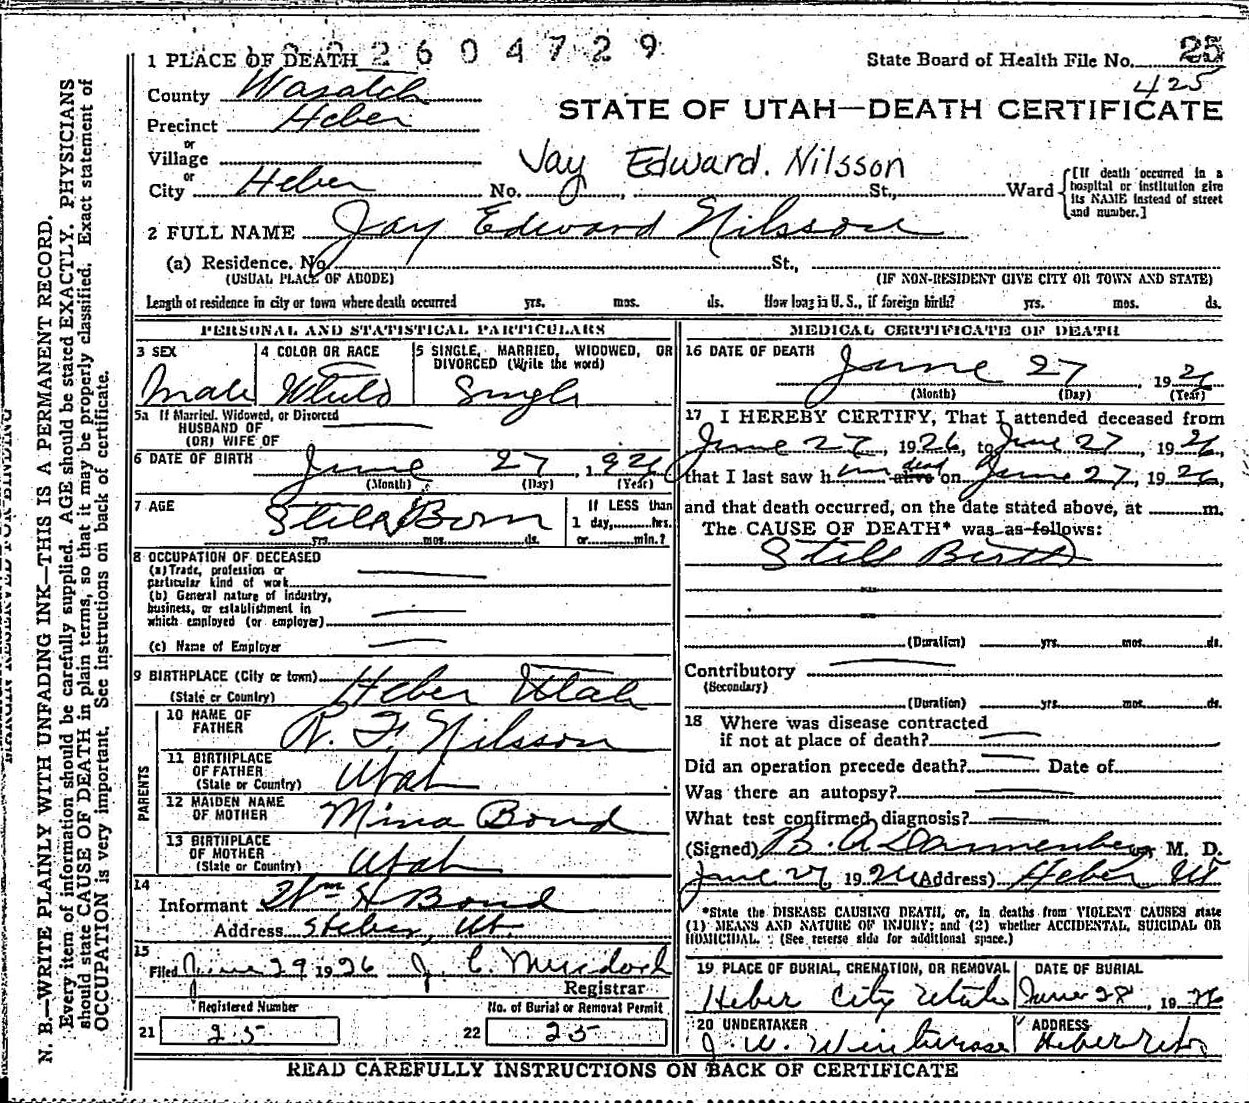 2604729
1 PLACE OF DEATH
State Board of Health File No. 25
425
County Wasatch
STATE OF UTAH—DEATH CERTIFICATE
Precinct Heber
or
Village
Jay Edward. Nilsson
or
City Heber No. St., Ward
[If death occurred in a hospital or institution give its NAME instead of street and number.]
2 FULL NAME Jay Edward Nilsson
(a) Residence. No. St.,
(USUAL PLACE OF ABODE) (IF NON-RESIDENT GIVE CITY OR TOWN AND STATE)
Length of residence in city or town where death occurred yrs. mos. ds. How long in U. S., if foreign birth? yrs. mos. ds.
PERSONAL AND STATISTICAL PARTICULARS
3 SEX
Male
4 COLOR OR RACE
White
5 SINGLE, MARRIED, WIDOWED, OR
DIVORCED (Write the word)
Single
5a If Married, Widowed, or Divorced
HUSBAND OF
(OR) WIFE OF
6 DATE OF BIRTH June 27, 1926
(Month) (Day) (Year)
7 AGE
Still Born
yrs. mos. ds.
If LESS than
1 day, hrs.
or min.?
8 OCCUPATION OF DECEASED
(a) Trade, profession or
particular kind of work
(b) General nature of industry,
business, or establishment in
which employed (or employer)
(c) Name of Employer
9 BIRTHPLACE (City or town)
(State or Country) Heber Utah
PARENTS
10 NAME OF
FATHER R. F. Nilsson
11 BIRTHPLACE
OF FATHER
(State or Country) Utah
12 MAIDEN NAME
OF MOTHER Mina Bond
13 BIRTHPLACE
OF MOTHER
(State or Country) Utah
14
Informant Wm H Bond
Address Heber, Ut
15
Filed June 29 1926 J. C. Murdoch
Registrar
Registered Number No. of Burial or Removal Permit
21 25 22 25
MEDICAL CERTIFICATE OF DEATH
16 DATE OF DEATH
June 27, 1926
(Month) (Day) (Year)
17 I HEREBY CERTIFY, That I attended deceased from
June 27, 1926, to June 27, 1926,
that I last saw him alive dead on June 27, 1926,
and that death occurred, on the date stated above, at m.
The CAUSE OF DEATH* was as follows:
Still Birth
(Duration) yrs. mos. ds.
Contributory
(Secondary)
(Duration) yrs. mos. ds.
18 Where was disease contracted
if not at place of death?
Did an operation precede death? Date of
Was there an autopsy?
What test confirmed diagnosis?
(Signed) B. A Dannenberg, M. D.
June 27 1926 (Address) Heber Ut
*State the DISEASE CAUSING DEATH, or, in deaths from VIOLENT CAUSES state
(1) MEANS AND NATURE OF INJURY; and (2) whether ACCIDENTAL, SUICIDAL OR
HOMICIDAL. (See reverse side for additional space.)
19 PLACE OF BURIAL, CREMATION, OR REMOVAL
Heber City Utah
DATE OF BURIAL
June 28, 1926
20 UNDERTAKER
J. W. Winterose
ADDRESS
Heber Utah
READ CAREFULLY INSTRUCTIONS ON BACK OF CERTIFICATE
N. B.—WRITE PLAINLY WITH UNFADING INK—THIS IS A PERMANENT RECORD.
Every item of information should be carefully supplied. AGE should be stated EXACTLY. PHYSICIANS
should state CAUSE OF DEATH in plain terms, so that it may be properly classified. Exact statement of
OCCUPATION is very important. See instructions on back of certificate.
MARGIN RESERVED FOR BINDING